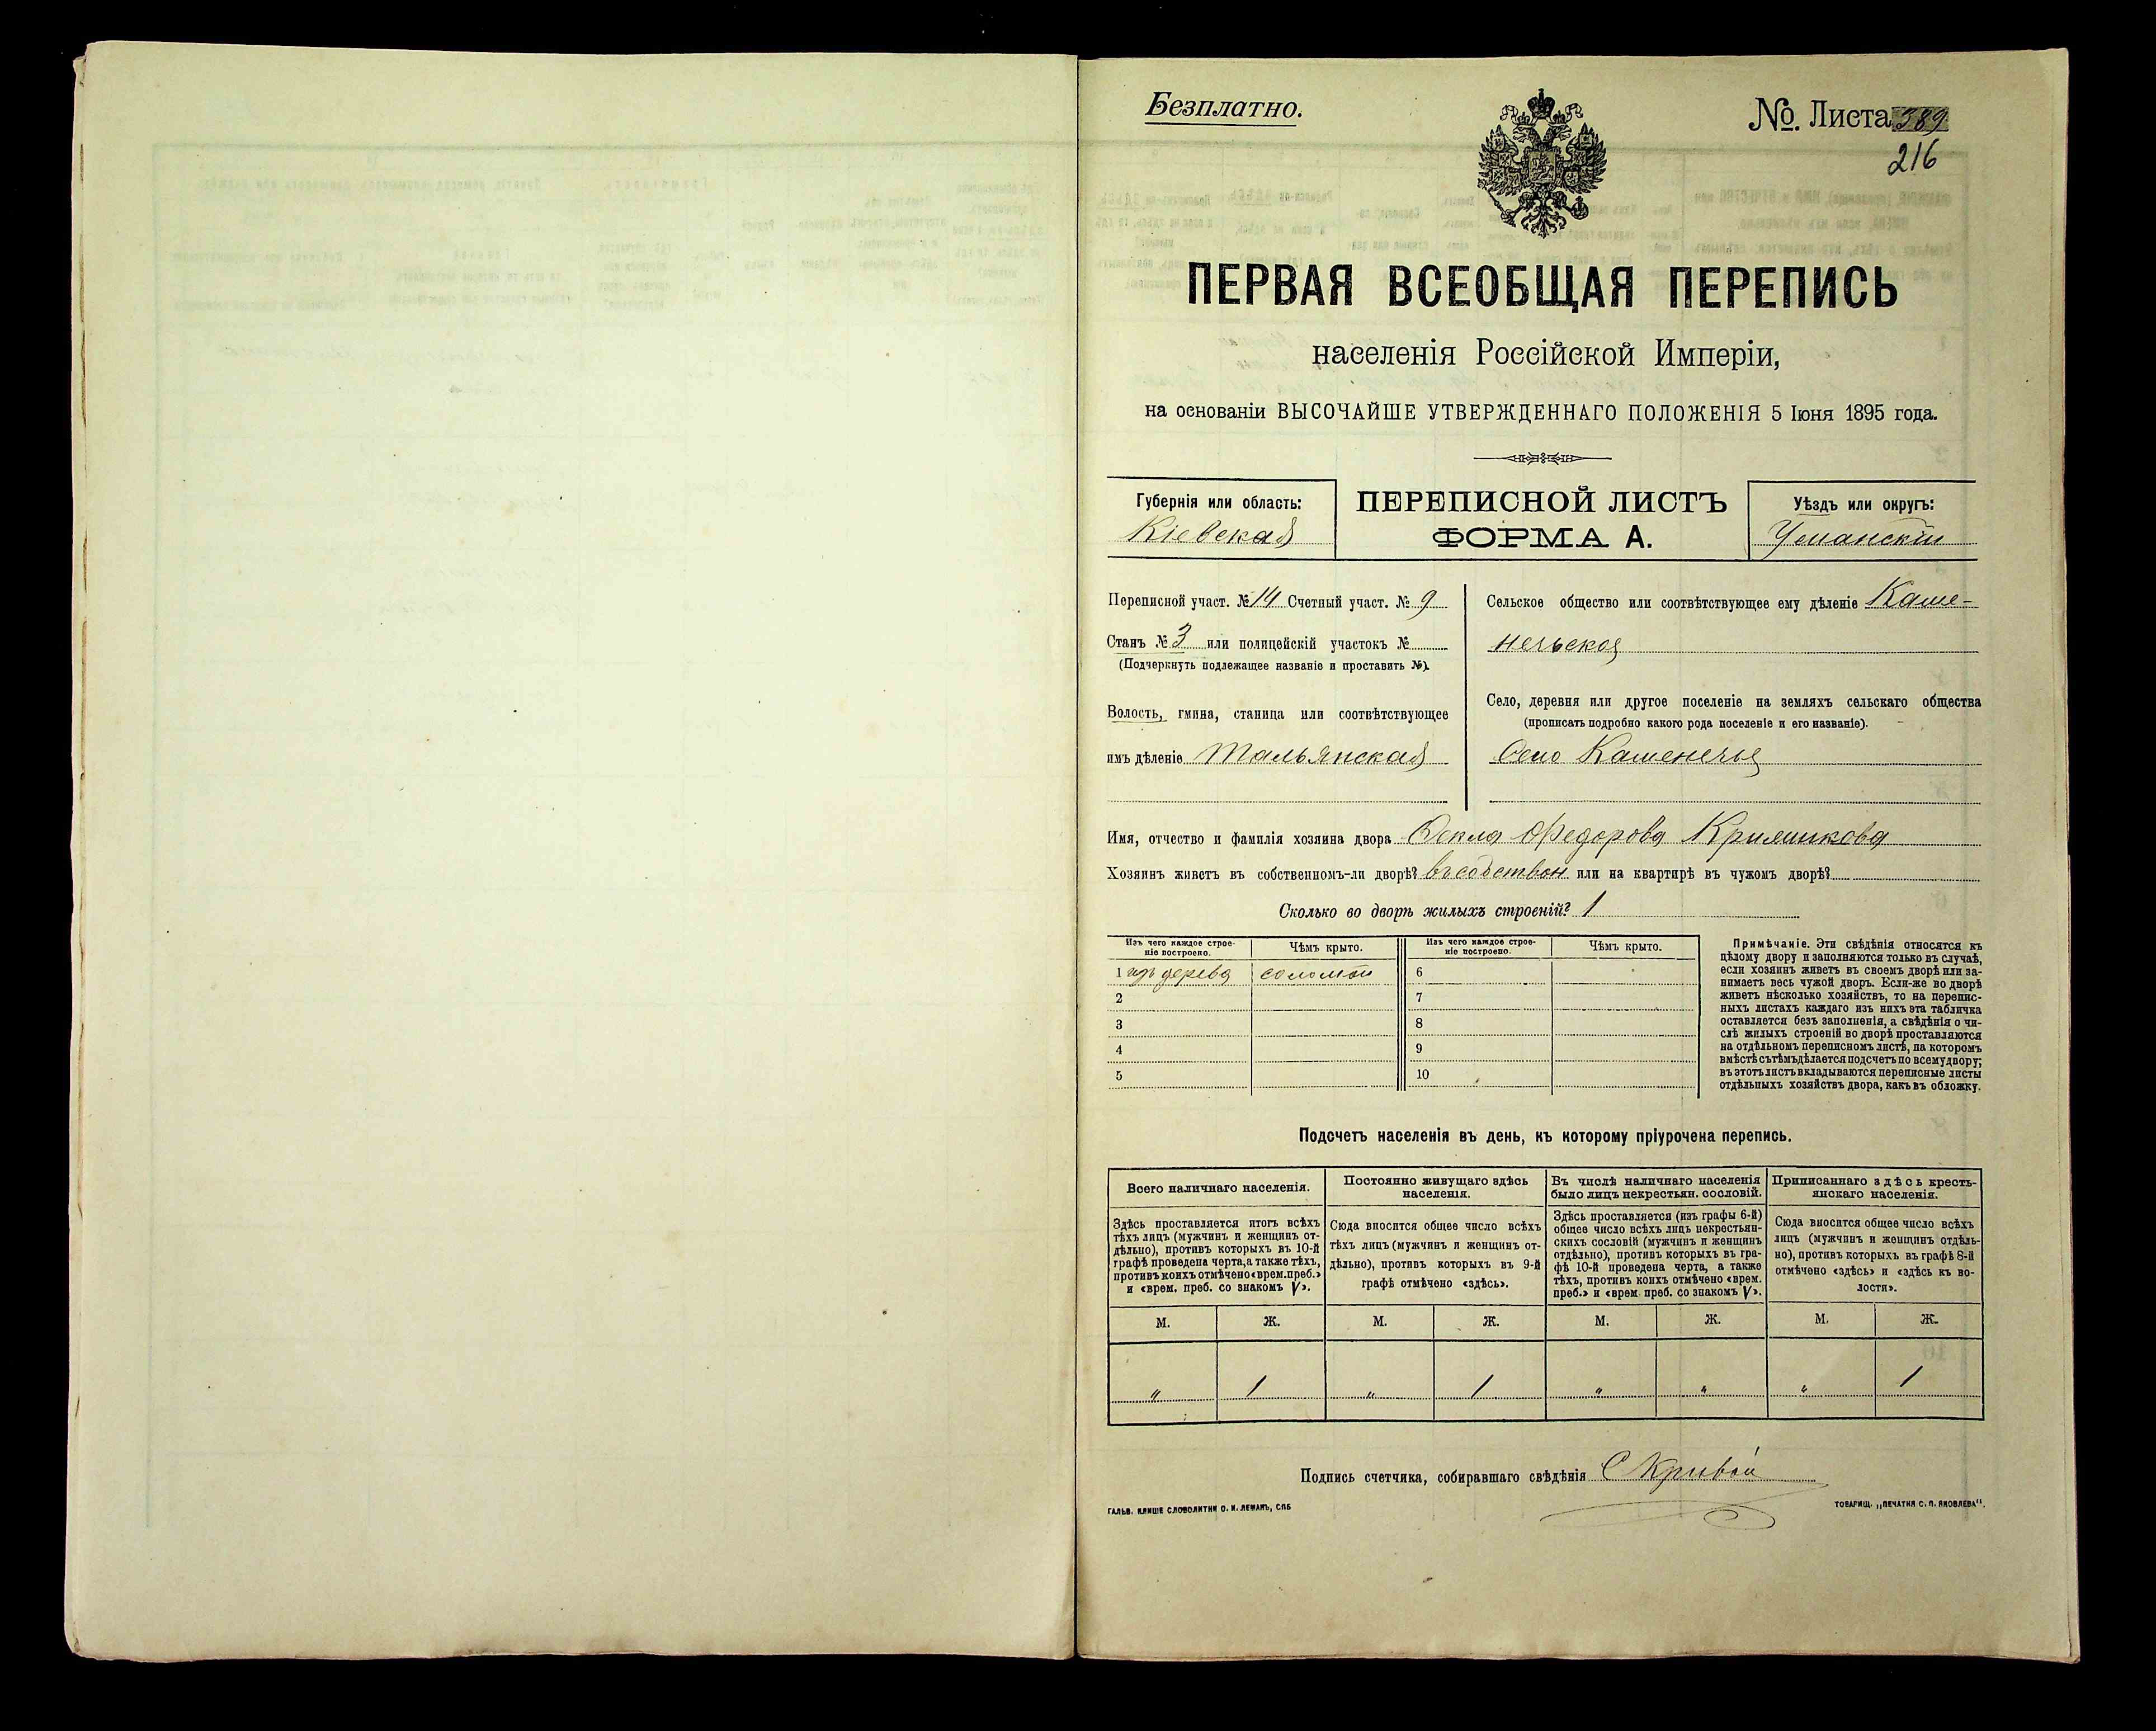 Безплатно.
№. Листа 389
216
ПЕРВАЯ ВСЕОБЩАЯ ПЕРЕПИСЬ
населенія Россійской Имперіи,
на основаніи ВЫСОЧАЙШЕ УТВЕРЖДЕННАГО ПОЛОЖЕНІЯ 5 Іюня 1895 года.
Губернія или область:
Кіевская
ПЕРЕПИСНОЙ ЛИСТЪ
ФОРМА А.
Уѣздъ или округъ:
Уманскій
Переписной участ. № 14 Счетный участ. № 9
Станъ № 3 или полицейскій участокъ №
(Подчеркнуть подлежащее названіе и проставить №).
Волость, гмина, станица или соотвѣтствующее
имъ дѣленіе Тальянская
Сельское общество или соотвѣтствующее ему дѣленіе
Село, деревня или другое поселеніе на земляхъ сельскаго общества
(прописать подробно какого рода поселеніе и его названіе).
Село
Имя, отчество и фамилія хозяина двора Ѳекла Федорова
Хозяинъ живетъ въ собственномъ-ли дворѣ? въ собствен или на квартирѣ въ чужомъ дворѣ?
Сколько во дворѣ жилыхъ строеній? 1
Изъ чего каждое строеніе построено.
Чѣмъ крыто.
Изъ чего каждое строеніе построено.
Чѣмъ крыто.
1 изъ дерева соломой 6
2 7
3 8
4 9
5 10
Примѣчаніе. Эти свѣдѣнія относятся къ
цѣлому двору и заполняются только въ случаѣ,
если хозяинъ живетъ въ своемъ дворѣ или за-
нимаетъ весь чужой дворъ. Если-же во дворѣ
живетъ нѣсколько хозяйствъ, то на перепис-
ныхъ листахъ каждаго изъ нихъ эта табличка
оставляется безъ заполненія, а свѣдѣнія о чи-
слѣ жилыхъ строеній во дворѣ проставляются
на отдѣльномъ переписномъ листѣ, на которомъ
вмѣстѣ съ тѣмъ дѣлается подсчетъ по всему двору;
въ этотъ листъ вкладываются переписные листы
отдѣльныхъ хозяйствъ двора, какъ въ обложку.
Подсчетъ населенія въ день, къ которому пріурочена перепись.
Всего наличнаго населенія.
Здѣсь проставляется итогъ всѣхъ
тѣхъ лицъ (мужчинъ и женщинъ от-
дѣльно), противъ которыхъ въ 10-й
графѣ проведена черта, а также тѣхъ,
противъ коихъ отмѣчено «врем. преб.»
и «врем. преб. со знакомъ V».
Постоянно живущаго здѣсь
населенія.
Сюда вносится общее число всѣхъ
тѣхъ лицъ (мужчинъ и женщинъ от-
дѣльно), противъ которыхъ въ 9-й
графѣ отмѣчено «здѣсь».
Въ числѣ наличнаго населенія
было лицъ некрестьян. сословій.
Здѣсь проставляется (изъ графы 6-й)
общее число всѣхъ лицъ некрестьян-
скихъ сословій (мужчинъ и женщинъ
отдѣльно), противъ которыхъ въ гра-
фѣ 10-й проведена черта, а также
тѣхъ, противъ коихъ отмѣчено «врем.
преб.» и «врем преб. со знакомъ V».
Приписаннаго здѣсь кресть-
янскаго населенія.
Сюда вносится общее число всѣхъ
лицъ (мужчинъ и женщинъ отдѣль-
но), противъ которыхъ въ графѣ 8-й
отмѣчено «здѣсь» и «здѣсь къ во-
лости».
М. Ж. М. Ж. М. Ж. М. Ж.
" 1 " 1 " " " 1
Подпись счетчика, собиравшаго свѣдѣнія С Кривой
ГАЛЬВ. КЛИШЕ СЛОВОЛИТНИ О. И. ЛЕМАНЪ, СПБ
ТОВАРИЩ. „ПЕЧАТНЯ С. П. ЯКОВЛЕВА".